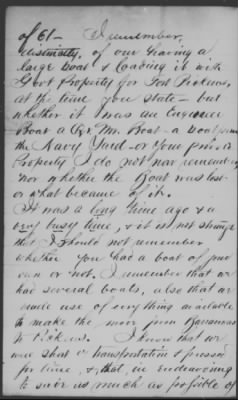 of 61 — I remember,
distinctly, of our having a
large boat & loading it with
Govt Property for Fort Pickens,
at the time you state — but
whether it was an Engineer
Boat a Qr. M. Boat — a boat from
the Navy Yard — or your private
Property I do not now remember
nor whether the Boat was lost
or what became of it.
It was a long time ago & a
very busy time, & it is not strange
that I should not remember
whether you had a boat of your
own or not. I remember that we
had several boats, also that we
made use of everything available
to make the move from Barrancas
to Pickens. I know that we
were short of transportation & pressed
for time, & that, in endeavoring
to save as much as possible of